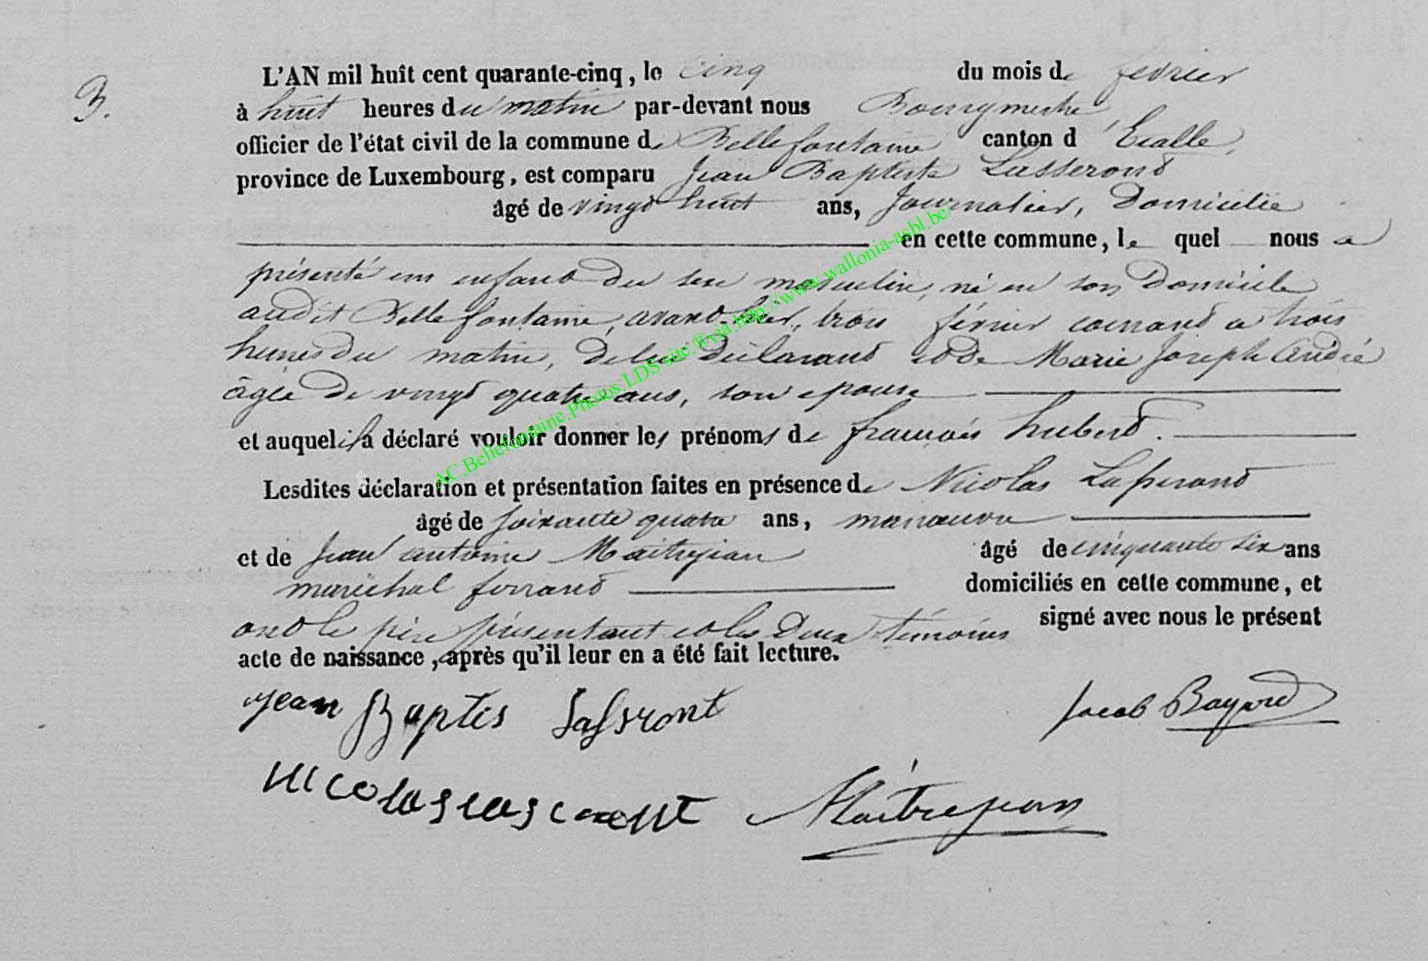 3.
L'AN mil huit cent quarante-cinq, le cinq du mois de fevrier
à huit heures du matin par-devant nous Bourgmestre,
officier de l'état civil de la commune de Bellefontaine canton d'Etalle,
province de Luxembourg, est comparu Jean Baptiste Lasserond
âgé de vingt huit ans, Journalier, Domicilié
en cette commune, le quel nous a
présenté un enfant du sexe masculin, né en son Domicile
audit Bellefontaine, avant-hier, trois février courant a trois
heures du matin, de lui Déclarant et de Marie Joseph André
âgée de vingt quatre ans, son epouse
et auquel il a déclaré vouloir donner les prénoms de francois hubert.
Lesdites déclaration et présentation faites en présence de Nicolas
âgé de soixante quatre ans, manœuvre
et de Jean antoine Maitrejean âgé de cinquante six ans
maréchal ferrand domiciliés en cette commune, et
ont le père présentant et les Deux témoins signé avec nous le présent
acte de naissance, après qu'il leur en a été fait lecture.
Jean Baptis Lassront Jacob Bayard
Nicolas Maitrejean
AC.Bellefontaine.Photos.LDS site:@vta.http://www.wallonia-asbl.be/